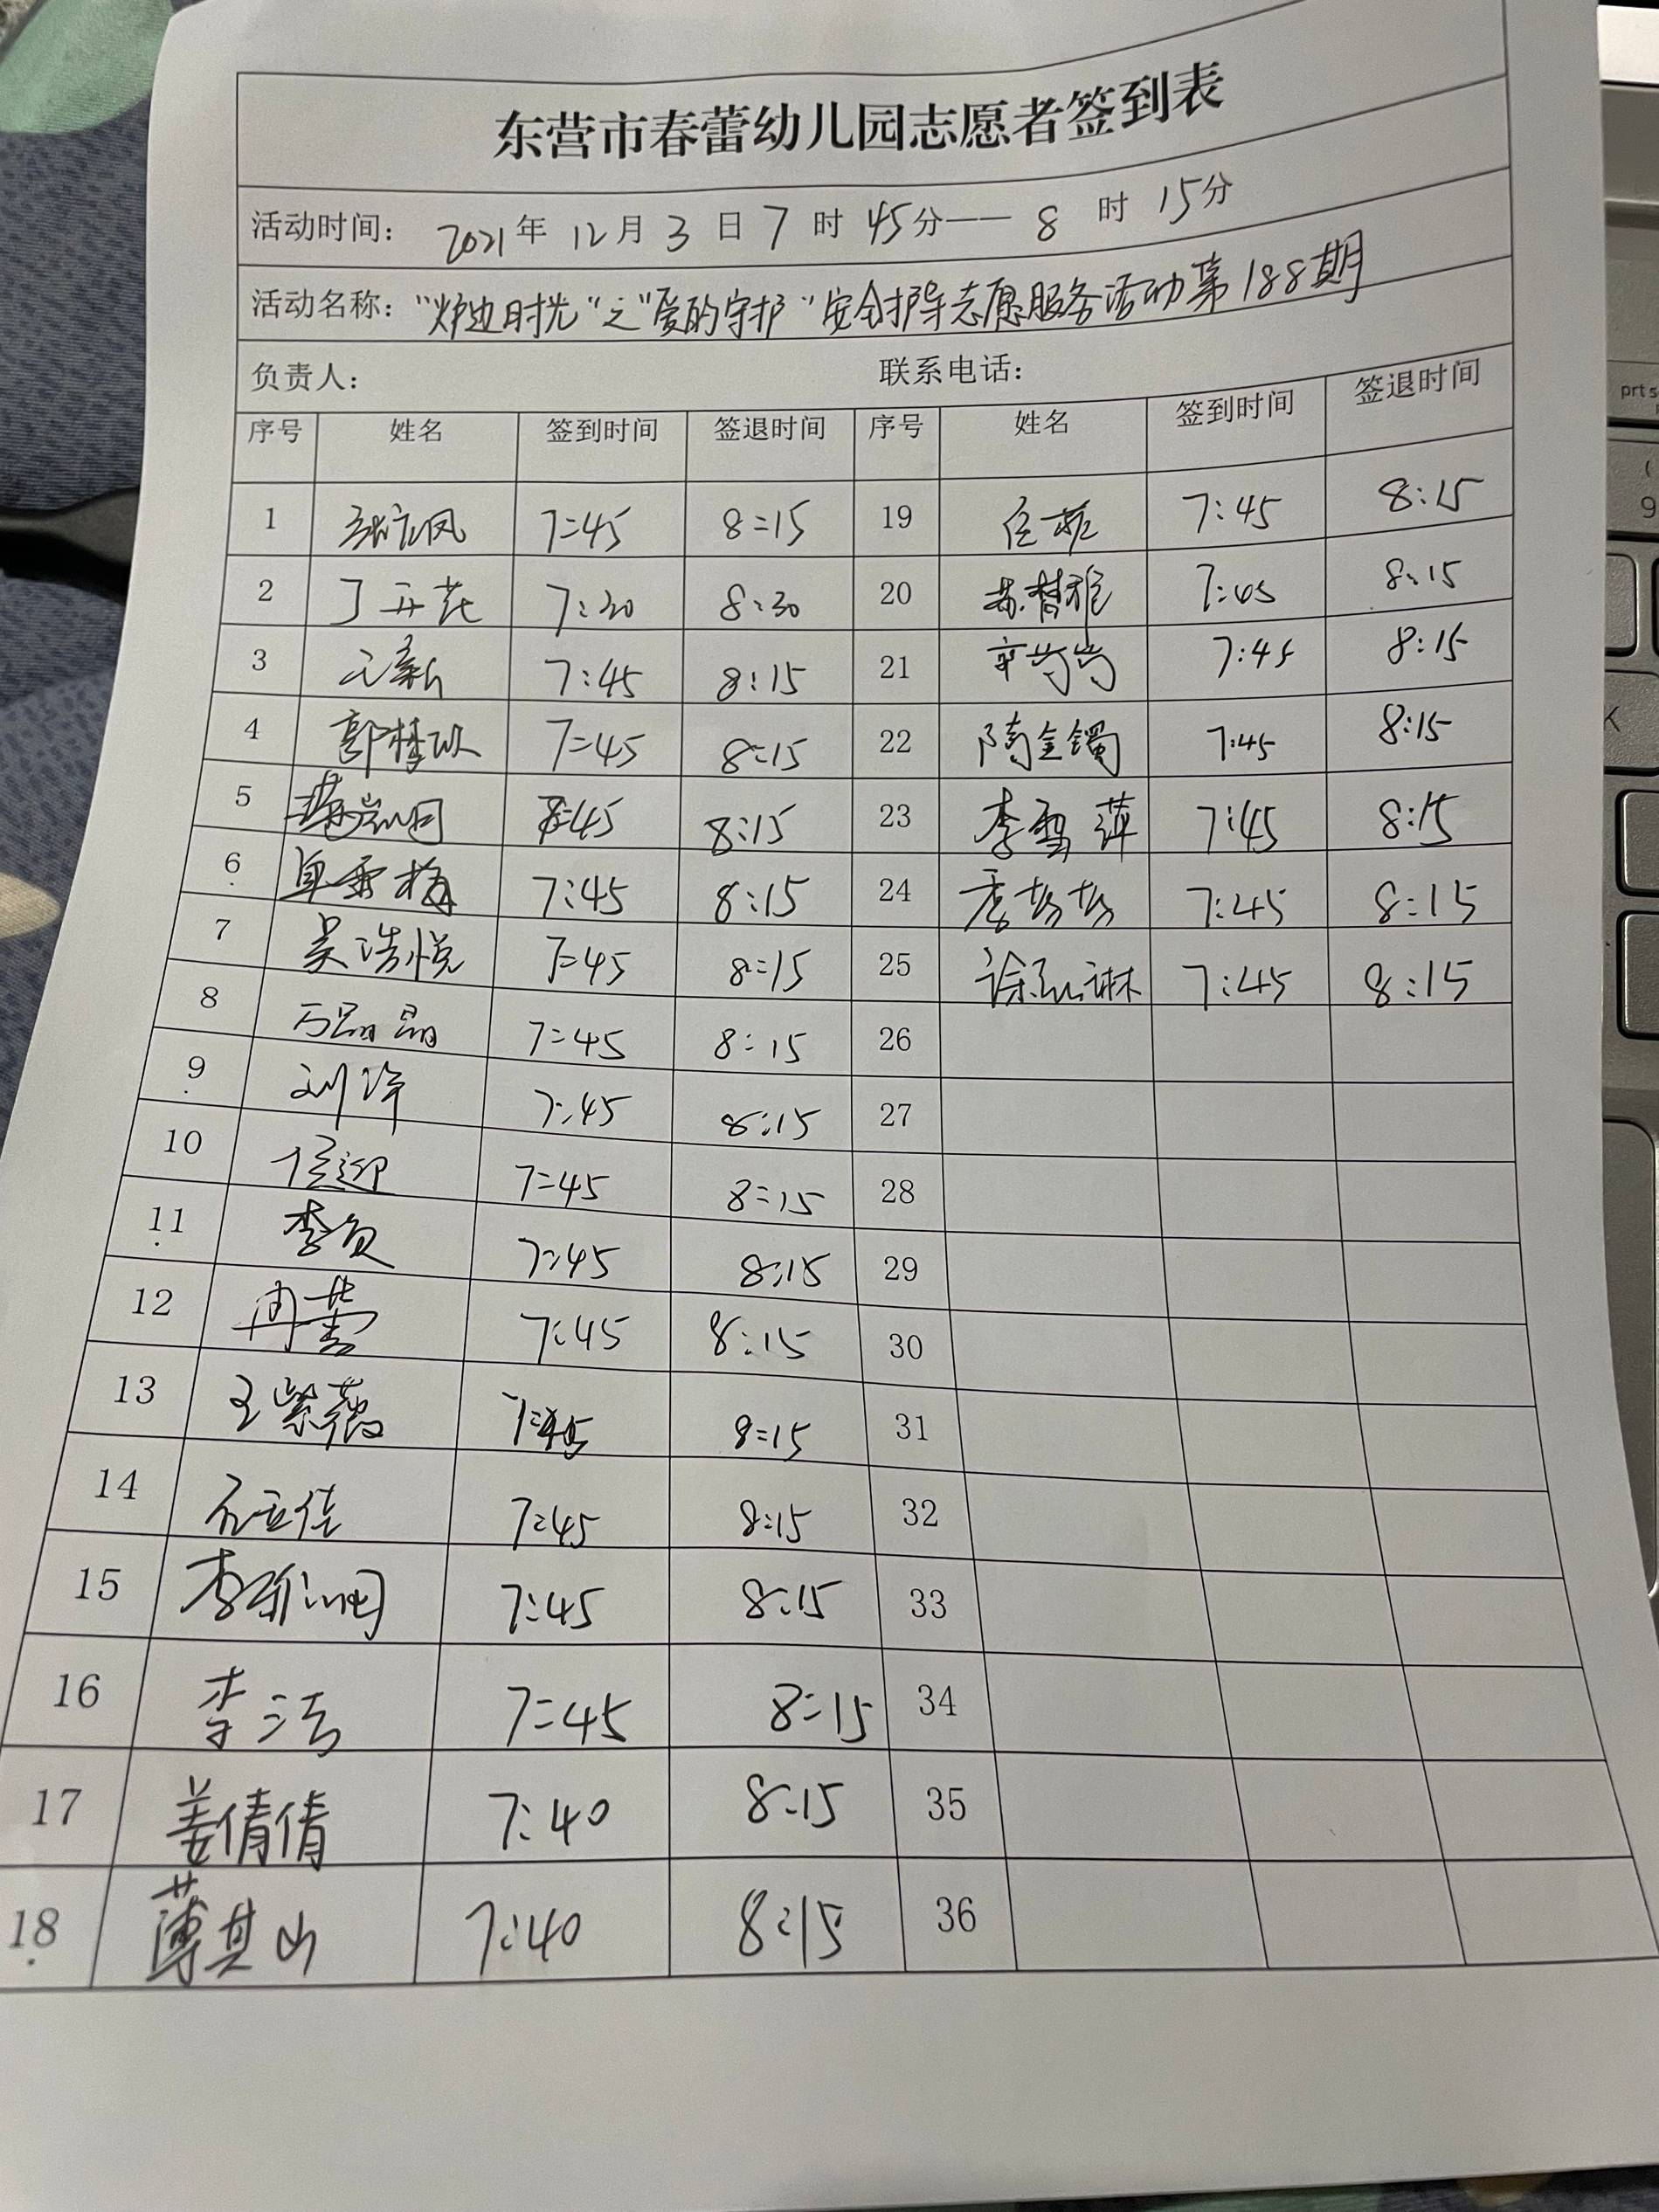 东营市春蕾幼儿园志愿者签到表
活动时间: 2021年 12月 3 日 7 时 45分—— 8 时 15分
活动名称: "炉边时光"之"爱的守护"安全护导志愿服务活动第188期
负责人: 联系电话:
序号 姓名 签到时间 签退时间 序号 姓名 签到时间 签退时间
1 7:45 8:15 19 任 7:45 8:15
2 丁开花 7:30 8:30 20 苏梦雅 7:45 8:15
3 7:45 8:15 21 7:45 8:15
4 郭梦欣 7:45 8:15 22 隋金镯 7:45 8:15
5 7:45 8:15 23 李雪萍 7:45 8:15
6 单雪梅 7:45 8:15 24 李苗苗 7:45 8:15
7 吴浩悦 7:45 8:15 25 7:45 8:15
8 万晶晶 7:45 8:15 26
9 刘萍 7:45 8:15 27
10 侯迎 7:45 8:15 28
11 李 7:45 8:15 29
12 冉蕾 7:45 8:15 30
13 王紫薇 7:45 8:15 31
14 石亚佳 7:45 8:15 32
15 李 7:45 8:15 33
16 李洁 7:45 8:15 34
17 姜倩倩 7:40 8:15 35
18 薄其山 7:40 8:15 36